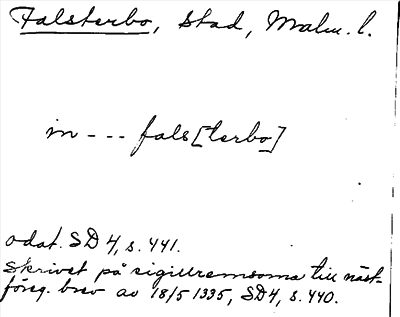 Falsterbo, Stad, Malm. l.
in - - - fals[terbo]
odat. SD 4, s. 441.
Skrivet på sigillremsorna till näst-
föreg. brev av 18/5 1335, SD4, s. 440.